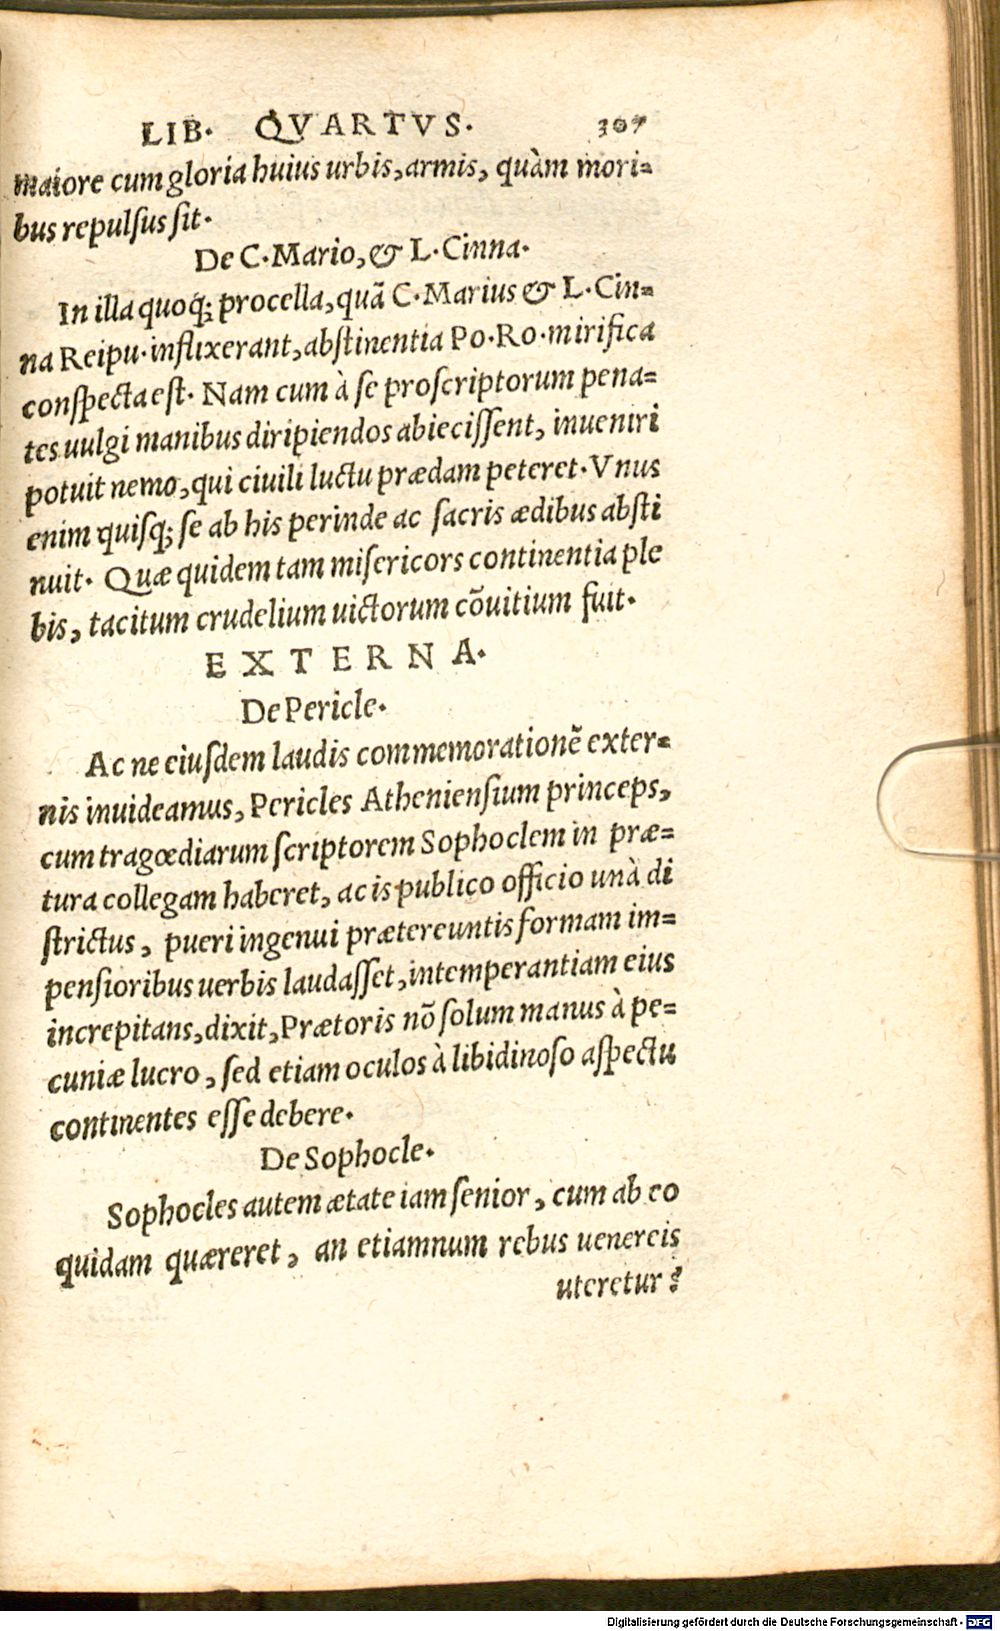 LIB. QVARTVS. 307
maiore cum gloria huius urbis, armis, quàm mori-
bus repulſus ſit.
De C. Mario, & L. Cinna.
In illa quoq; procella, quã C. Marius & L. Cin-
na Reipu. inflixerant, abſtinentia Po. Ro. mirifica
conſpecta eſt. Nam cum à ſe proſcriptorum pena-
tes uulgi manibus diripiendos abieciſſent, inueniri
potuit nemo, qui ciuili luctu prædam peteret. Vnus
enim quiſq; ſe ab his perinde ac ſacris ædibus abſti
nuit. Quæ quidem tam miſericors continentia ple
bis, tacitum crudelium uictorum cõuitium fuit.
EXTERNA.
De Pericle.
Ac ne eiuſdem laudis commemorationẽ exter-
nis inuideamus, Pericles Athenienſium princeps,
cum tragœdiarum ſcriptorem Sophoclem in præ-
tura collegam haberet, ac is publico officio unà di
ſtrictus, pueri ingenui prætereuntis formam im-
penſioribus uerbis laudaſſet, intemperantiam eius
increpitans, dixit, Prætoris nõ ſolum manus à pe-
cuniæ lucro, ſed etiam oculos à libidinoſo aſpectu
continentes eſſe debere.
De Sophocle.
Sophocles autem ætate iam ſenior, cum ab eo
quidam quæreret, an etiamnum rebus uenereis
uteretur?
Digitalisierung gefördert durch die Deutsche Forschungsgemeinschaft - DFG